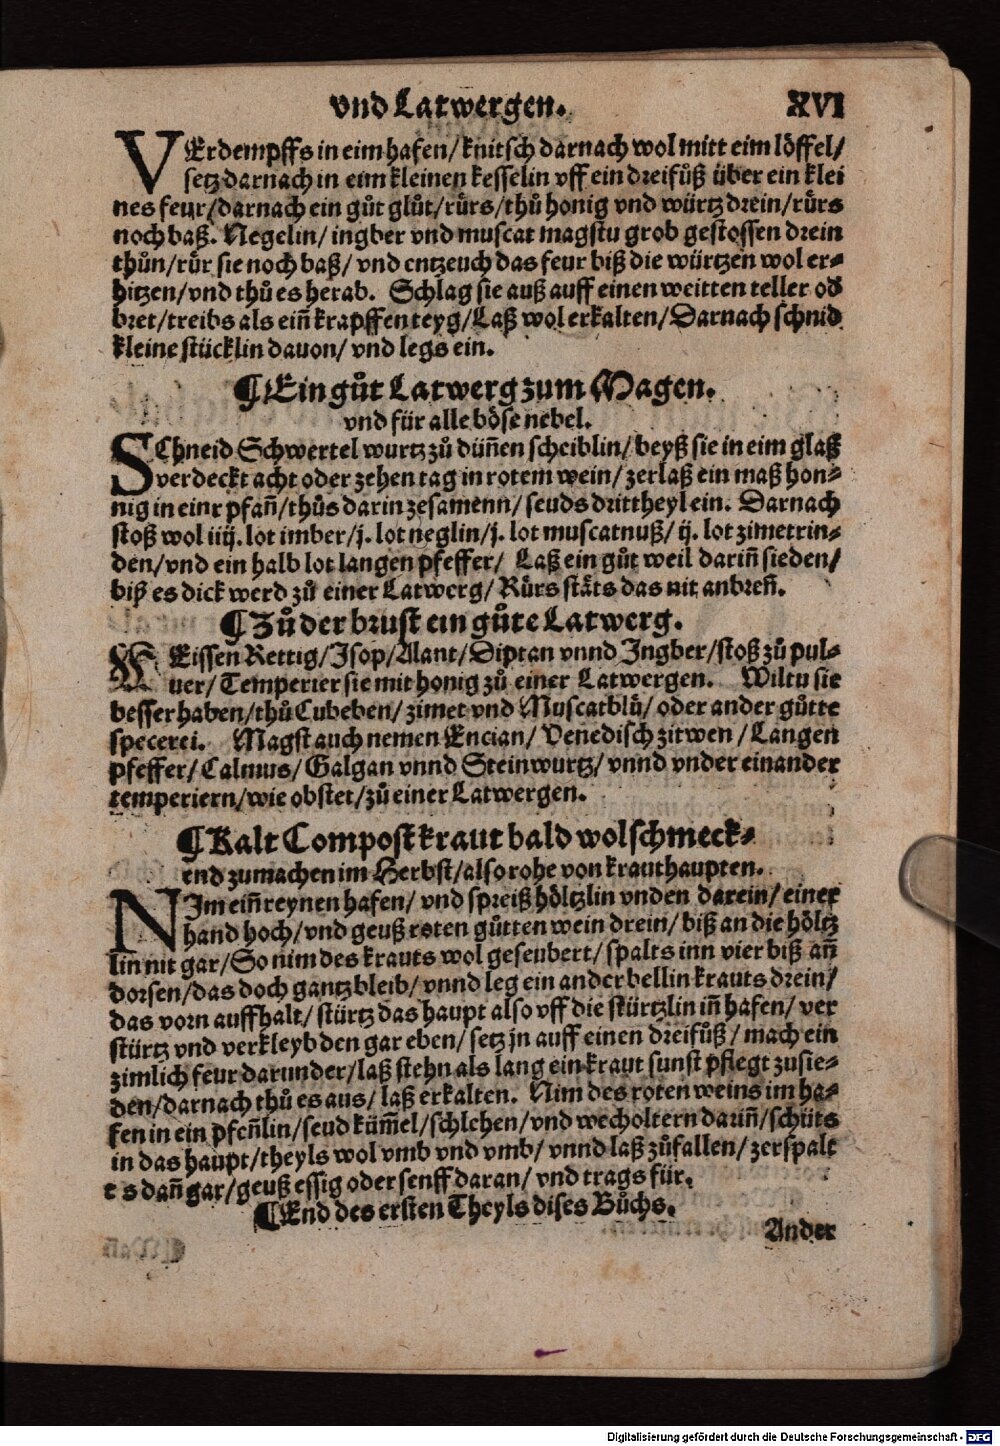 vnd Latwergen. XVI
VErdempffs in eim hafen/ knitsch darnach wol mitt eim löffel/
setz darnach in eim kleinen kesselin vff ein dreifůß über ein klei
nes feur/darnach ein gůt glůt/rürs/thů honig vnd würtz drein/rürs
noch baß. Negelin/ ingber vnd muscat magstu grob gestossen drein
thůn/rür sie noch baß/ vnd entzeuch das feur biß die würtzen wol er-
hitzen/vnd thů es herab. Schlag sie auß auff einen weitten teller od
bret/treibs als ein̄ krapffen teyg/Laß wol erkalten/Darnach schnid
kleine stücklin dauon/ vnd legs ein.
¶Ein gůt Latwerg zum Magen.
vnd für alle böse nebel.
SChneid Schwertel wurtz zů dün̄en scheiblin/ beyß sie in eim glaß
verdeckt acht oder zehen tag in rotem wein/ zerlaß ein maß hon-
nig in einr pfan̄/thůs darin zesamenn/ seuds drittheyl ein. Darnach
stoß wol iiij. lot imber/j. lot neglin/j. lot muscatnuß/ ij. lot zimetrin-
den/vnd ein halb lot langen pfeffer/ Laß ein gůt weil darin̄ sieden/
biß es dick werd zů einer Latwerg/ Rürs stäts das nit anbren̄.
¶Zů der brust ein gůte Latwerg.
WEissen Rettig/Isop/Alant/Diptan vnnd Ingber/stoß zů pul-
uer/ Temperier sie mit honig zů einer Latwergen. Wiltu sie
besser haben/thů Cubeben/ zimet vnd Muscatblü/ oder ander gůtte
specerei. Magst auch nemen Encian/ Venedisch zitwen /Langen
pfeffer/Calmus/ Galgan vnnd Steinwurtz/ vnnd vnder einander
temperiern/wie obstet/zů einer Latwergen.
¶Kalt Compost kraut bald wolschmeck-
end zumachen im Herbst/also rohe von krauthaupten.
NIm ein̄ reynen hafen/ vnd spreiß höltzlin vnden darein/ einer
hand hoch/vnd geuß roten gůtten wein drein/ biß an die höltz
lin nit gar/So nim des krauts wol geseubert/ spalts inn vier biß an̄
dorsen/das doch gantz bleib/ vnnd leg ein ander bellin krauts drein/
das vorn auffhalt/ stürtz das haupt also vff die stürtzlin in̄ hafen/ ver
stürtz vnd verkleyb den gar eben/ setz jn auff einen dreifůß/ mach ein
zimlich feur darunder/laß stehn als lang ein kraut sunst pflegt zusie-
den/darnach thů es aus/ laß erkalten. Nim des roten weins im ha-
fen in ein pfen̄lin/seud küm̄el/schlehen/vnd wecholtern darin̄/schüts
in das haupt/theyls wol vmb vnd vmb/ vnnd laß zůfallen/ zerspalt
es dan̄ gar/geuß essig oder senff daran/ vnd trags für.
¶End des ersten Theyls dises Bůchs.
Ander
Digitalisierung gefördert durch die Deutsche Forschungsgemeinschaft - DFG